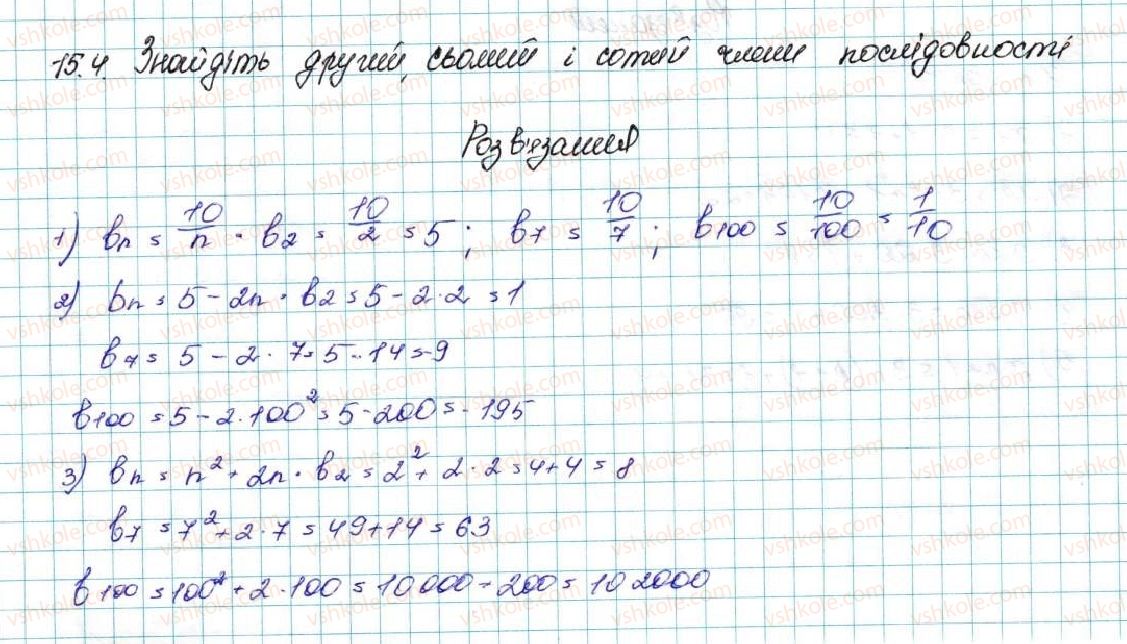 15.4. Знайдіть другий, сьомий і сотий члени послідовності
Розв'язання
1) bn = 10/n. b2 = 10/2 = 5; b7 = 10/7; b100 = 10/100 = 1/10
2) bn = 5 - 2n. b2 = 5 - 2·2 = 1
b7 = 5 - 2·7 = 5 - 14 = -9
b100 = 5 - 2·100² = 5 - 200 = -195
3) bn = n² + 2n. b2 = 2² + 2·2 = 4+4 = 8
b7 = 7² + 2·7 = 49+14 = 63
b100 = 100² + 2·100 = 10000 - 200 = 102000